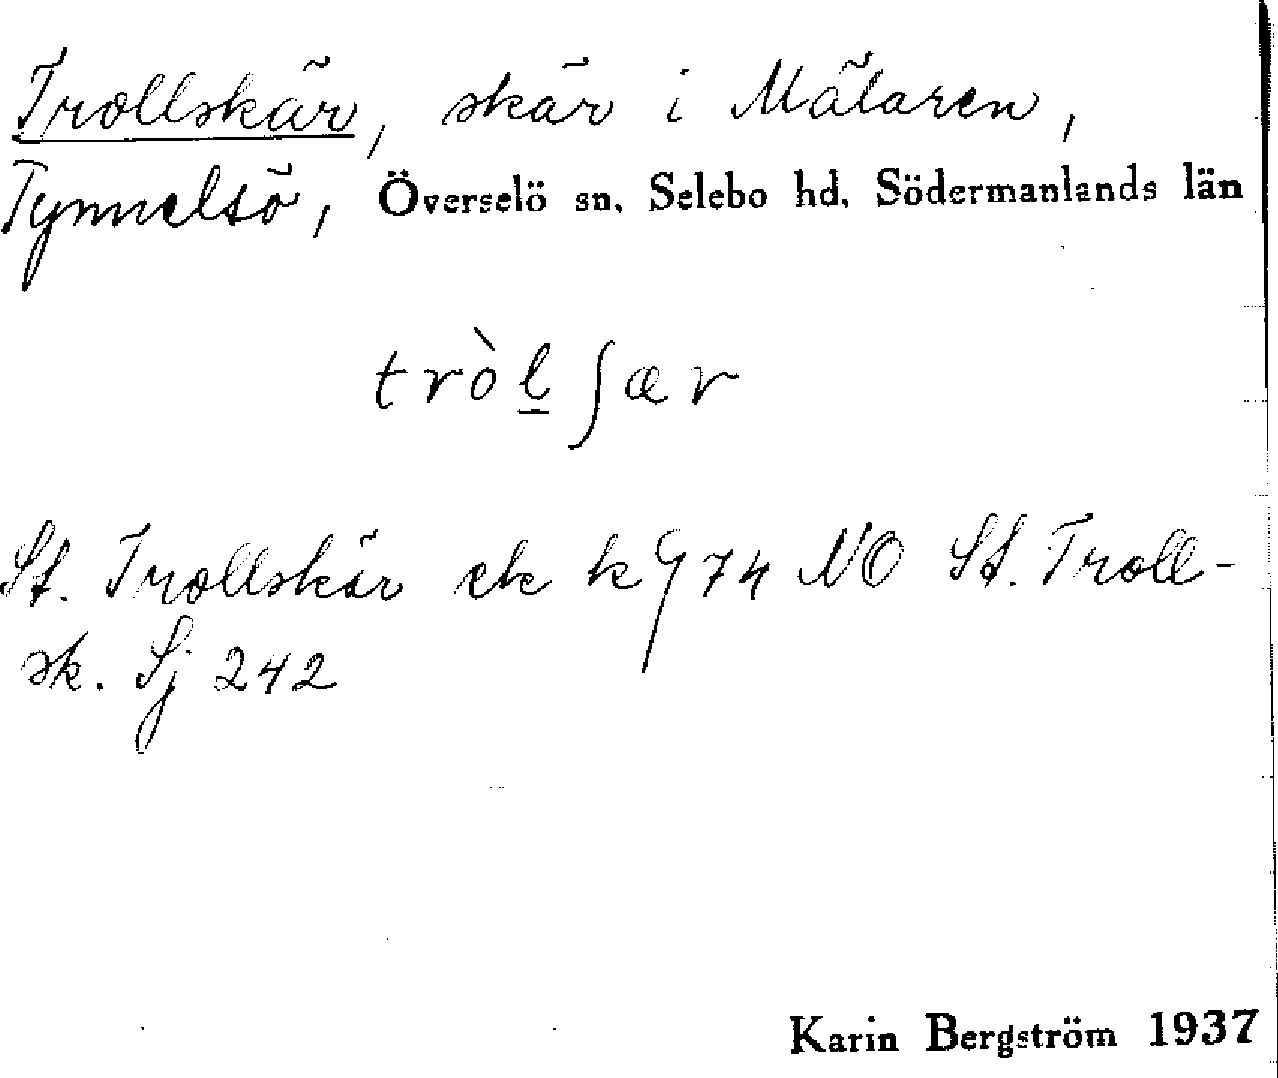 Trollskär, skär i Mälaren,
Tynnelsö, Överselö sn. Selebo hd. Södermanlands län
tròl̲ʃær
St. Trollskär ek k 974 NO St. Troll-
sk. Sj 242
Karin Bergström 1937